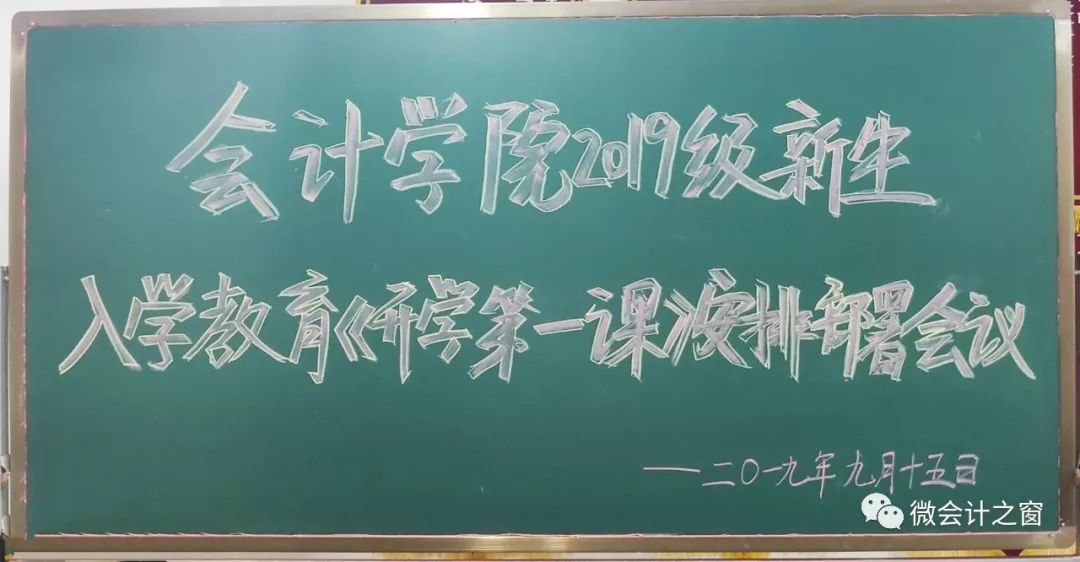 会计学院2019级新生
入学教育《开学第一课》安排部署会议
——二〇一九年九月十五日
微会计之窗